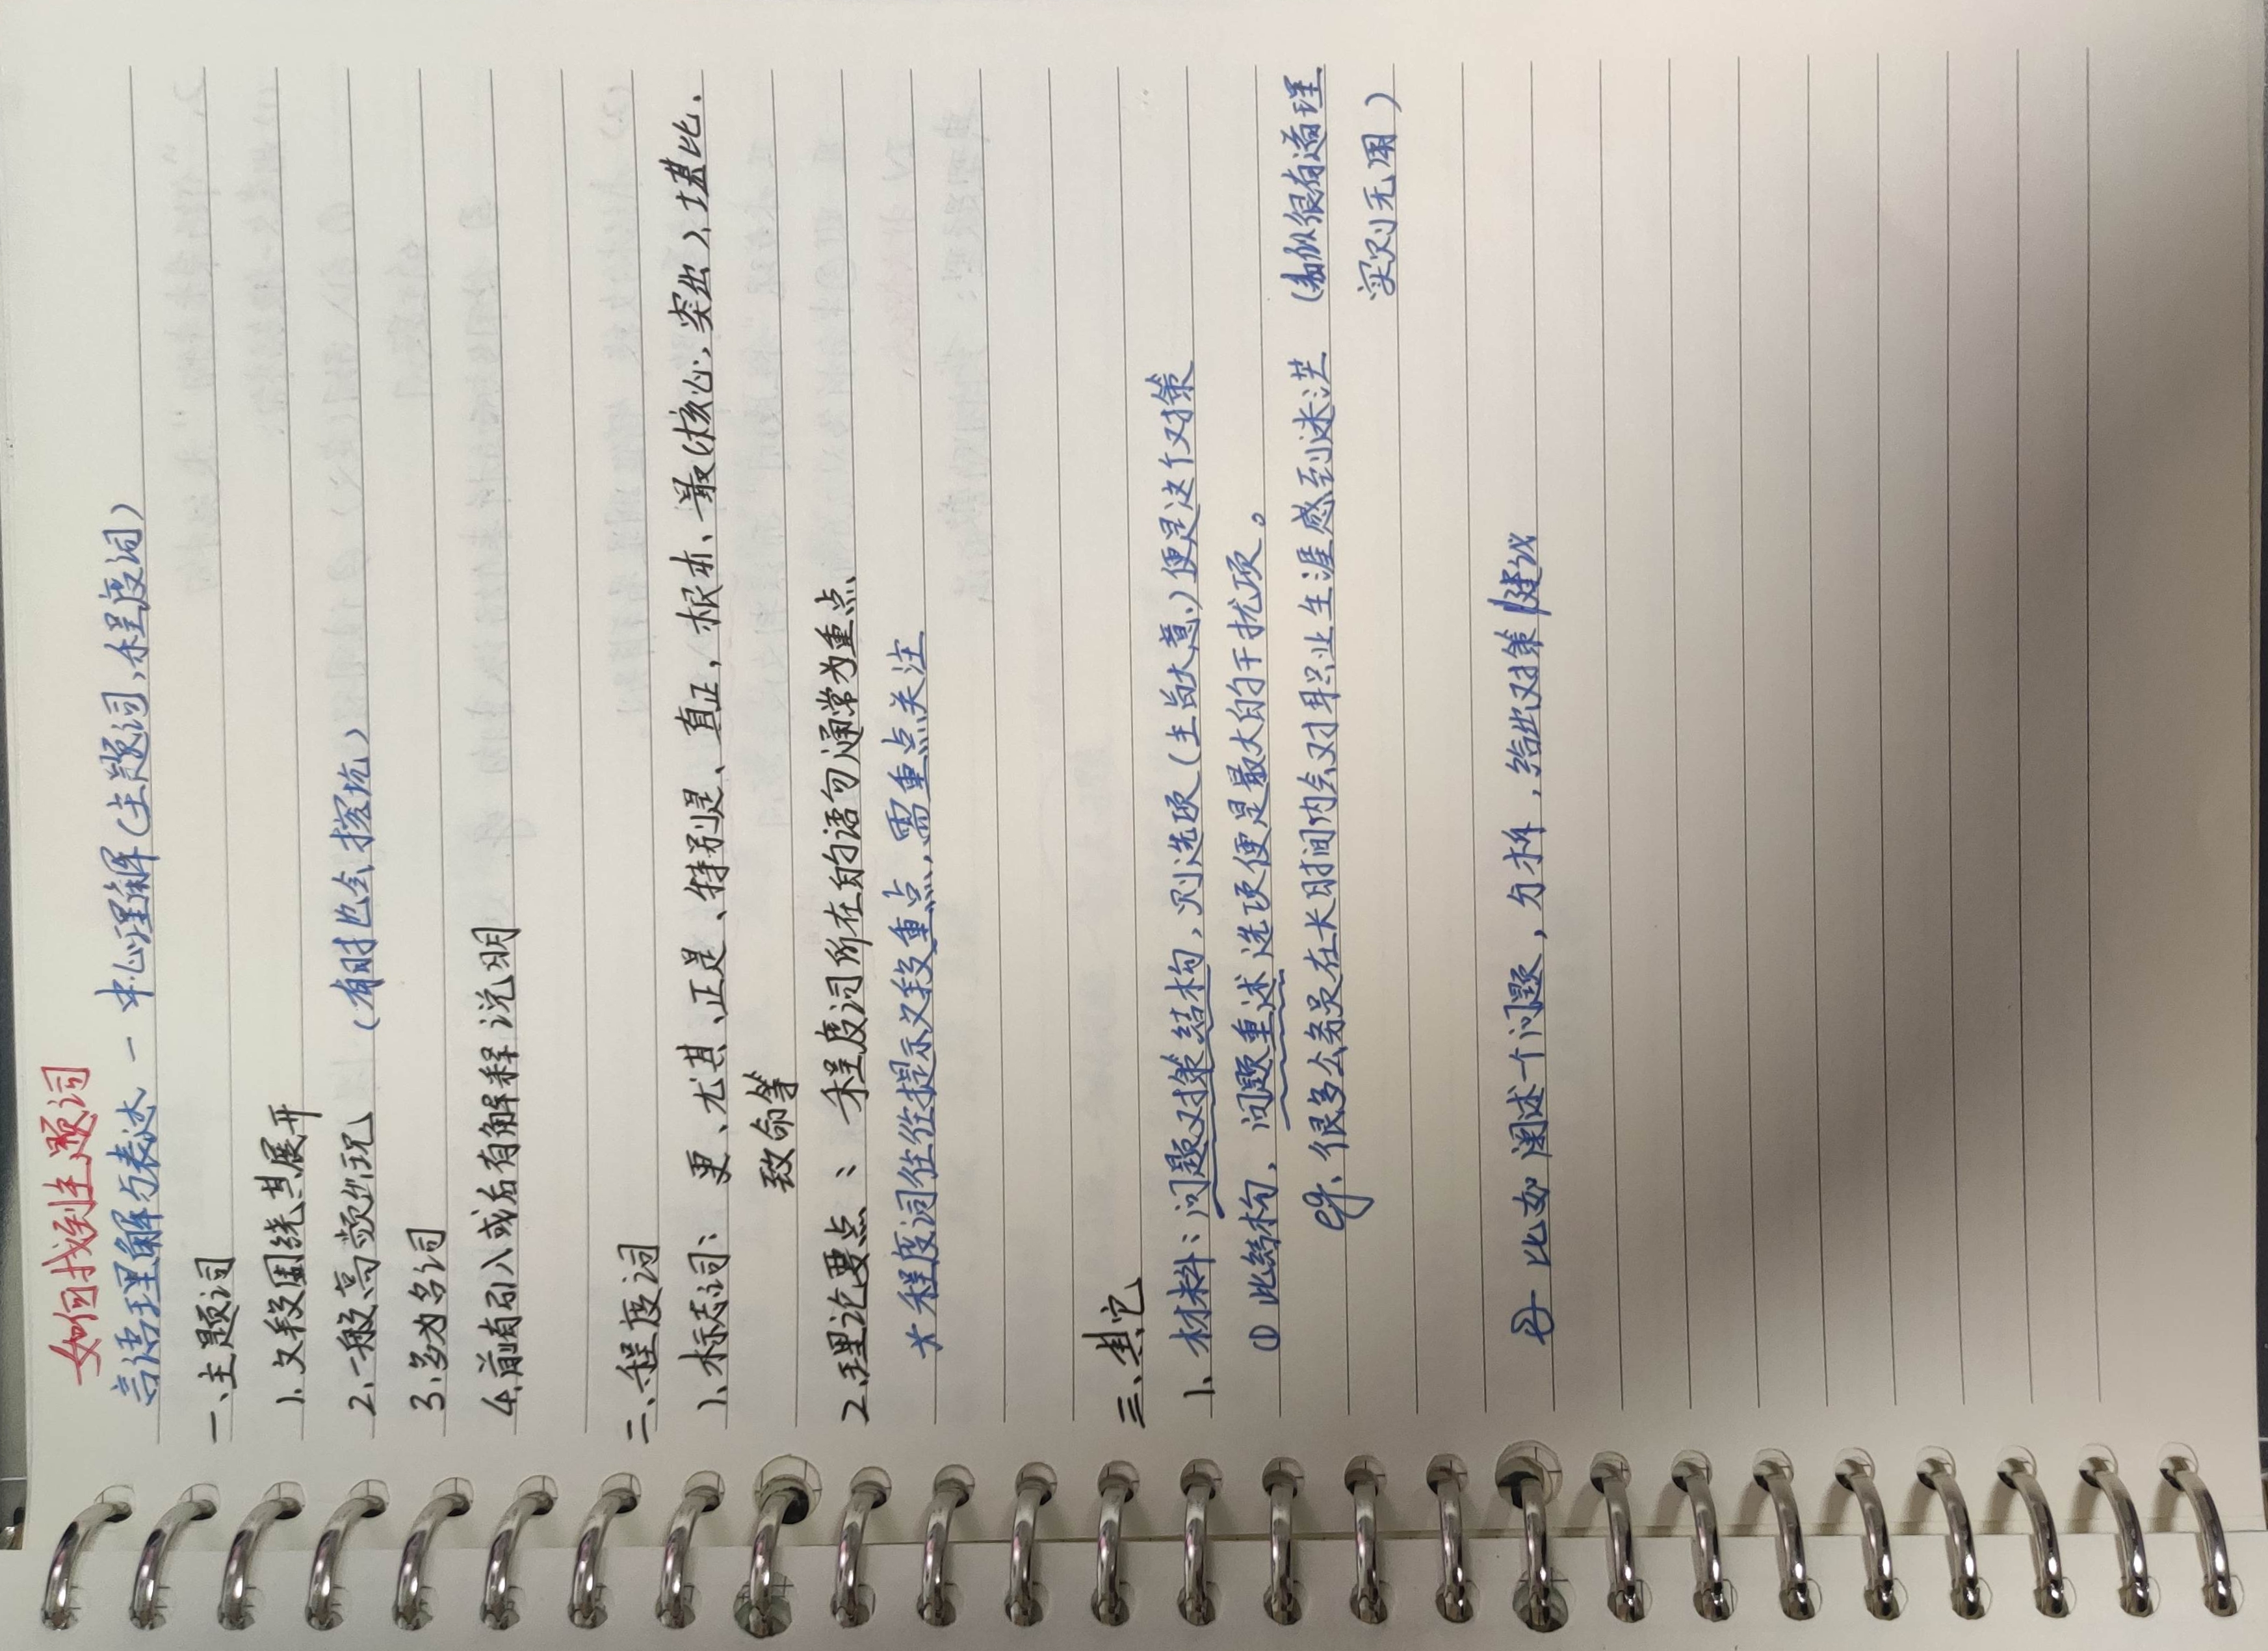 如何找到主题词
言语理解与表达 — 中心理解(主题词,程度词)
一、主题词
1、文段围绕其展开
2、一般高频出现 (有时也会挖坑)
3、多为名词
4、前有引入或后有解释说明
二、程度词
1、标志词: 更、尤其、正是、特别是、真正, 根本、最(核心, 突出)、堪比、
致命等
2、理论要点: 程度词所在的语句通常为重点、
* 程度词往往提示文段重点,需重点关注
三、其它
1、材料:问题对策结构,则选项(主旨大意)便是这个对策
① 此结构,问题重述选项便是最大的干扰项。
eg. 很多公务员在长时间内会对职业生涯感到迷茫 (看似很有道理
实则无用)
② 比如阐述一个问题,分析,给出对策/建议